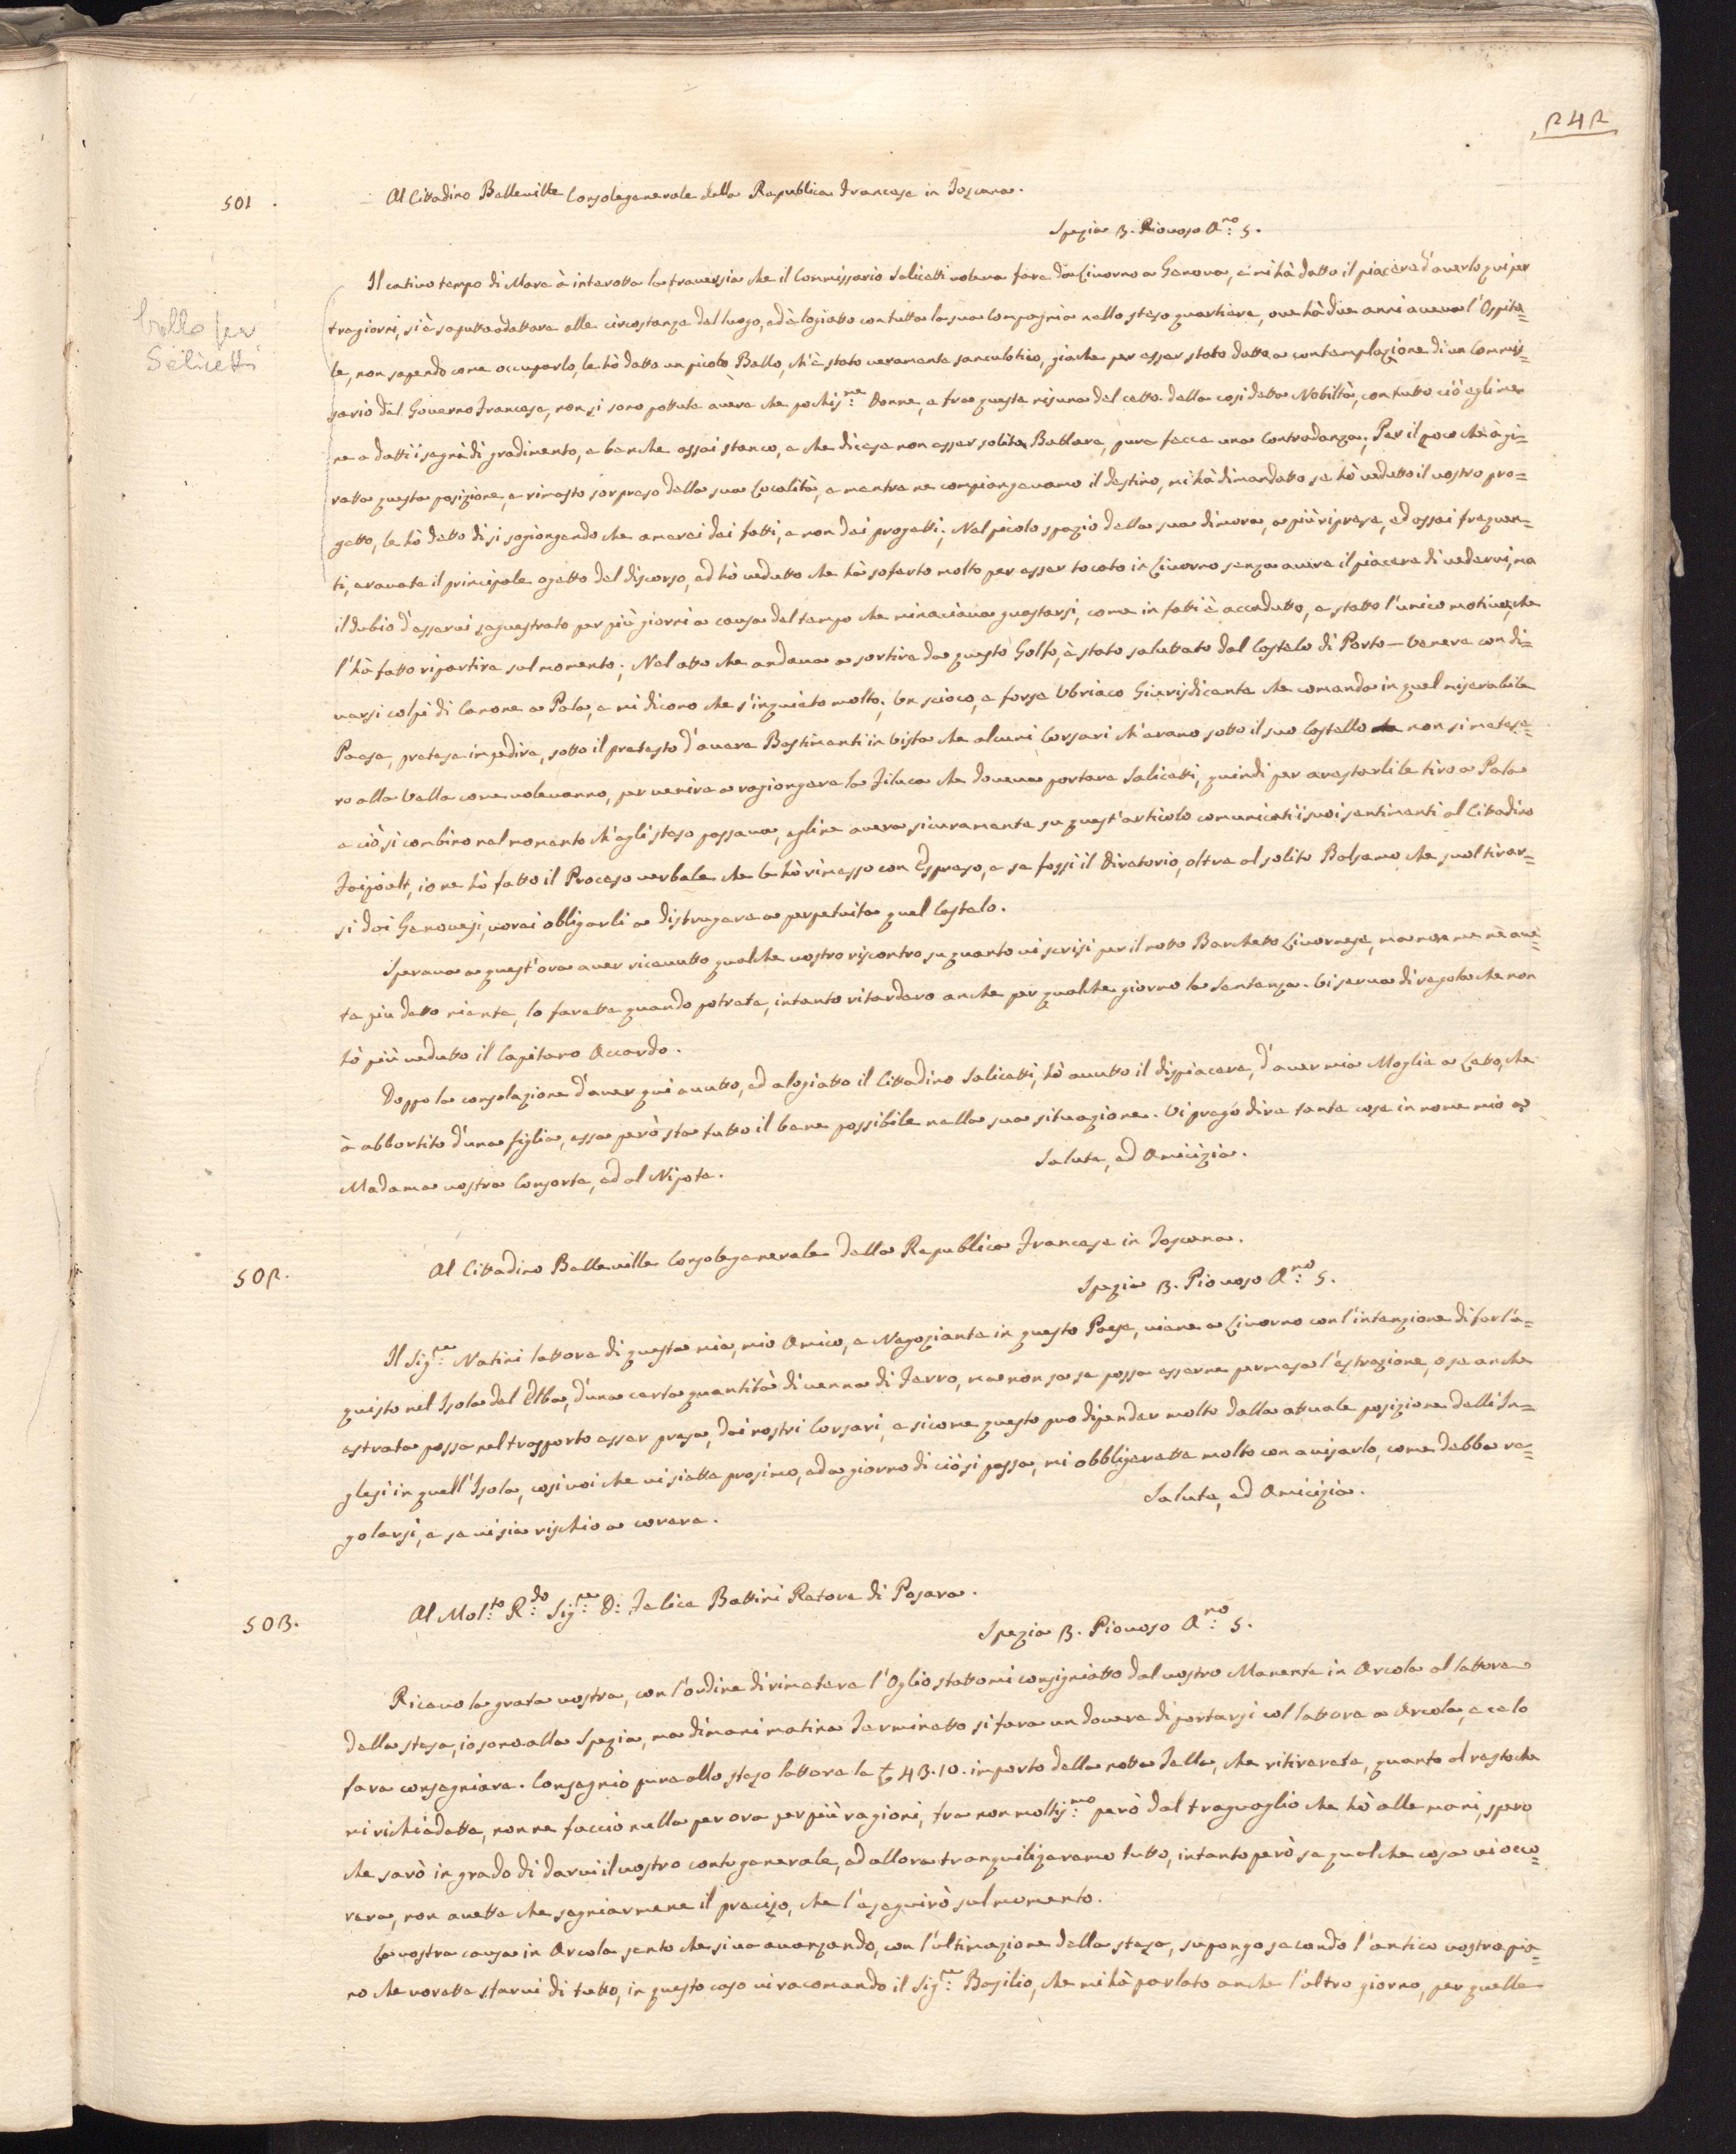 242
501. Al Cittadino Belleville Consolegenerale della Republica Francese in Toscana.
Spezia 3. Piovoso A.no 5.
ballo per Selicetti
Il cativo tempo di Mare à interotta la traversia che il Commissario Salicetti voleva fare da Livorno a Genova, e mi hà datto il piacere d'averlo qui per
tre giorni, si è saputto adattare alle circostanze del luogo, ed è logiatto con tutta la sua Compagnia nello steso quartiere, ove hà due anni aveva l'Ospita=
le, non sapendo come occuparlo, le hò datto un picolo Ballo, ch'è stato veramente sanculotico, giache per esser stato datto a contemplazione di un Commis=
sario del Governo Francese, non si sono pottute avere che pochis.me Donne, e fra queste nisuna del cetto della cosi detta Nobiltà, con tutto ciò egli me
ne a datti i segni di gradimento, e benche assai stanco, e che dicese non esser solito Ballare, pure fecce una Contradanza; Per il poco che à gi=
ratto questa posizione, e rimasto sorpreso della sua Località, e mentre ne compiangevamo il destino, mi hà dimandatto se hò vedutto il vostro pro=
getto, le hò detto di si sogiongendo che amerei dei fatti, e non dei progetti; Nel picolo spazio della sua dimora, a più riprese, ed assai frequen=
ti, eravate il principale ogetto del discorso, ed hò vedutto che hà soferto molto per esser tocato in Livorno senza avere il piacere di vedervi, ma
il dubio d'esservi sequestrato per più giorni a causa del tempo che minaciava guastarsi, come in fatti è accadutto, e statto l'unico motivo, che
l'hà fatto ripartire sul momento; Nel atto che andava a sortire da questo Golfo, è stato saluttato dal Castelo di Porto-Venere con di=
versi colpi di Canone a Pala, e mi dicono che s'inquieto molto; Un scioco, e forse Ubriaco Giurisdicente che comanda in quel miserabile
Paese, pretese impedire, sotto il pretesto d'avere Bastimenti in vista che alcuni Corsari ch'erano sotto il suo Castello non si metese=
ro alla Vella come volevanno, per venire a ragiongere la Filuca che doveva portare Salicetti, quindi per arestarli le tiro a Pala
e ciò si combino nel momento ch'egli steso passava, egli ne avera sicuramente su quest'articolo comunicati i suoi sentimenti al Cittadino
Faipoult, io ne hò fatto il Proceso verbale che le hò rimesso con Espreso, e se fossi il Diretorio, oltre al solito Balsamo che suol tirar=
si dai Genovesi, vorei obligarli a distrugere a perpetuita quel Castelo.
Sperava a quest'ora aver ricevutto qualche vostro riscontro su quanto vi scrisi per il notto Barchetto Livornese, ma non me ne ave=
te piu detto niente, lo farette quando potrete, intanto ritardero anche per qualche giorno la Sentenza. Vi serva di regola che non
hò più vedutto il Capitano Accardo.
Doppo la consolazione d'aver qui avutto, ed alogiatto il Cittadino Salicetti, hò avutto il dispiacere, d'aver mia Moglie a Letto, che
à abbortito d'una figlia, essa però sta tutto il bene possibile nella sua situazione. Vi prego dire tante cose in nome mio a
Madama vostra Consorte, ed al Nipote.
Salute, ed Amicizia.
502. Al Cittadino Belleville Consolegenerale della Republica Francese in Toscana.
Spezia 3. Piovoso A.no 5.
Il Sig.re Natini lattore di questa mia, mio Amico, e Negoziante in questo Paese, viene a Livorno con l'intenzione di far l'a=
quisto nel Isola del Elba, d'una certa quantità di venna di Ferro, ma non sa se possa esserne permesa l'estrazione, o se anche
estrata possa nel trasporto esser presa, dai nostri Corsari, e sicome questo puo dipender molto dalla attuale posizione delli In=
glesi in quell'Isola, cosi voi che vi siatte prosimo, ed a giorno di ciò si passa, mi obbligerette molto con avisarlo, come debba re=
golarsi, e se vi sia rischio a corere.
Salute, ed Amicizia.
503. Al Mol.to R.do Sig.re D: Felice Battini Retore di Pegara.
Spezia 3. Piovoso A.no 5.
Ricevo la grata vostra, con l'ordine di rimetere l'Oglio stattomi consigniatto dal vostro Manente in Arcola al lattore
della stesa, io sono alla Spezia, ma dimani matina Ferminetto si fara un dovere di portarsi col lattore a Arcola, e celo
fara consegniare. Consegnio pure allo steso lattore le £ 43.10. importo della notta Tella, che ritirerete, quanto al resto che
mi richiedette, non ne faccio nulla per ora per più ragioni, fra non moltis.mo però dal travaglio che hò alle mani, spero
che sarò in grado di darvi il vostro conto generale, ed allora tranquilizaremo tutto, intanto però se qualche cosa vi occo=
rera, non avette che segniarmene il preciso, che l'eseguirò sul momento.
La vostra causa in Arcola sento che si va avanzando, con l'ultimazione della stesa, supongo secondo l'antico vostro pia=
no che vorette starvi di tutto, in questo caso vi racomando il Sig.re Basilio, che mi hà parlato anche l'altro giorno, per quelle